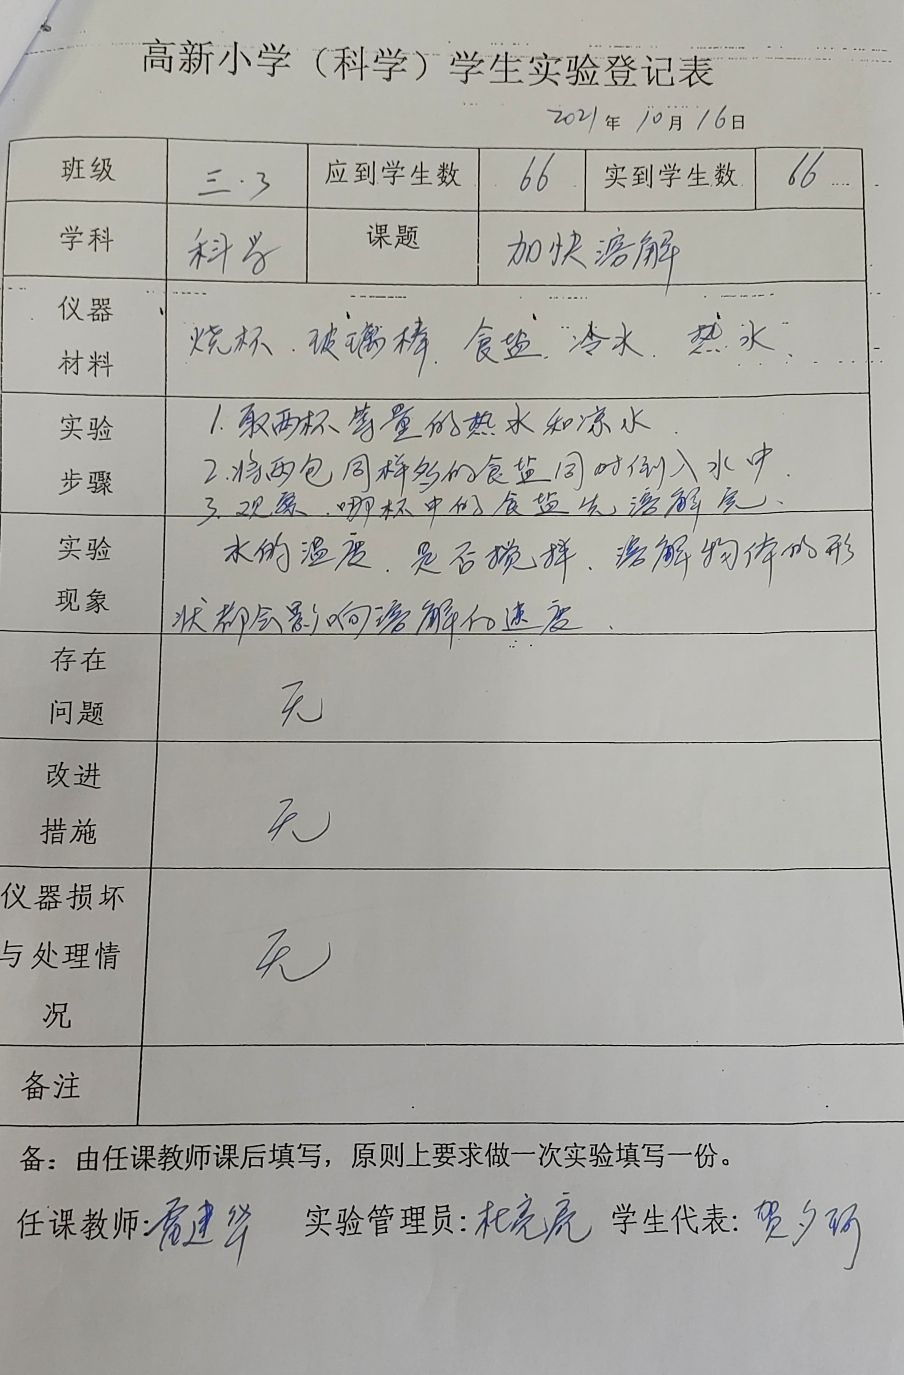 高新小学（科学）学生实验登记表
2021年10月16日
班级 三.3 应到学生数 66 实到学生数 66
学科 科学 课题 加快溶解
仪器
材料
烧杯、玻璃棒、食盐、冷水、热水、
实验
步骤
1.取两杯等量的热水和凉水.
2.将两包同样多的食盐同时倒入水中.
3.观察.哪杯中的食盐先溶解完.
实验
现象
水的温度、是否搅拌、溶解物体的形
状都会影响溶解的速度.
存在
问题
无
改进
措施
无
仪器损坏
与处理情
况
无
备注
备：由任课教师课后填写，原则上要求做一次实验填写一份。
任课教师:雷建华 实验管理员:杜亮亮 学生代表:贺夕珂